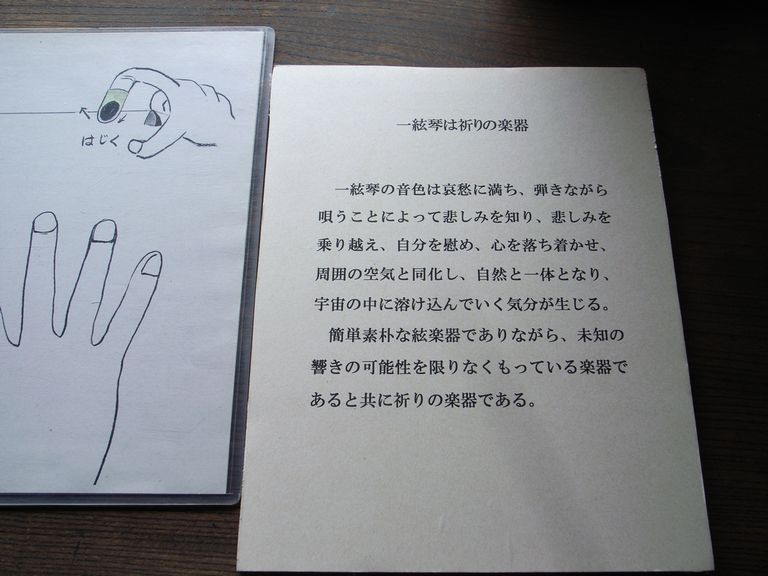 はじく
一絃琴は祈りの楽器
一絃琴の音色は哀愁に満ち、弾きながら
唄うことによって悲しみを知り、悲しみを
乗り越え、自分を慰め、心を落ち着かせ、
周囲の空気と同化し、自然と一体となり、
宇宙の中に溶け込んでいく気分が生じる。
簡単素朴な絃楽器でありながら、未知の
響きの可能性を限りなくもっている楽器で
あると共に祈りの楽器である。